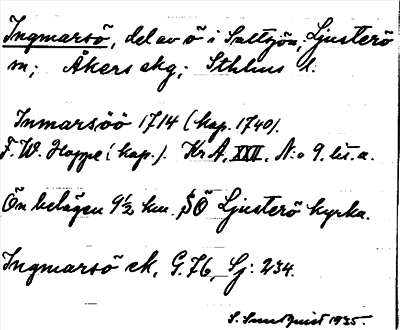 Ingmarsö, del av ö i Saltsjön, Ljusterö
sn; Åkers skg; Sthlms l.
Inmarsöö 1714 (kop. 1740).
F. W. Hoppe (kop.). KrA, XXII, N:o 9. lit. a.
Ön belägen 9½ km. SÖ Ljusterö kyrka.
Ingmarsö ek, G.76, Sj: 234.
S. Sundquist 1935.